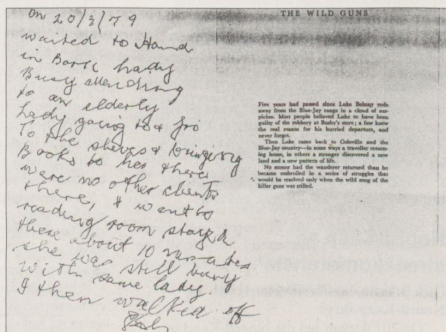 On 20/3/79
waited to Hand
in Book Lady
Busy attending
to an elderly
Lady going to & fro
To the shelves & bringing
Books to her there
were no other clients
there, I went to
reading room stayed
there about 10 minutes
she was still busy
with same lady.
I then walked off
THE WILD GUNS
Five years had passed since Luke Belmay rode
away from the Blue-Jay range in a cloud of sus-
picion. Most people believed Luke to have been
guilty of the robbery at Busby's store; a few knew
the real reason for his hurried departure, and
never forgot.
Then Luke came back to Cokeville and the
Blue-Jay country—in some ways a traveller return-
ing home, in others a stranger discovered a new
land and a new pattern of life.
No sooner had the wanderer returned than he
became embroiled in a series of struggles that
would be resolved only when the wild song of the
killer guns was stilled.